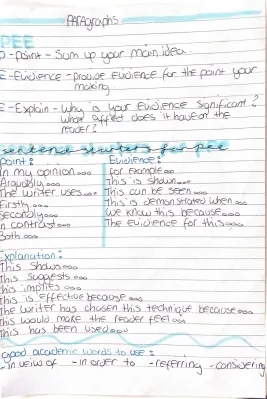 PARAgraphs
PEE
P - Point - Sum up your main idea.
E - Evidence - provide Evidence for the point your
making.
E - Explain - Why is your Evidence significant?
what affect does it have on the
reader?
sentence starters for pee
point:
In my opinion...
Arguably...
The writer uses...
Firstly...
Secondly...
In contrast...
Both...
Evidence:
For example...
This is shown...
This can be seen...
This is demonstrated when...
We know this because...
The evidence for this...
Explanation:
This shows...
This suggests...
this implies...
this is effective because...
The writer has chosen this technique because...
This would make the reader feel...
This has been used...
good academic words to use:
- in veiw of - in order to - referring - considering